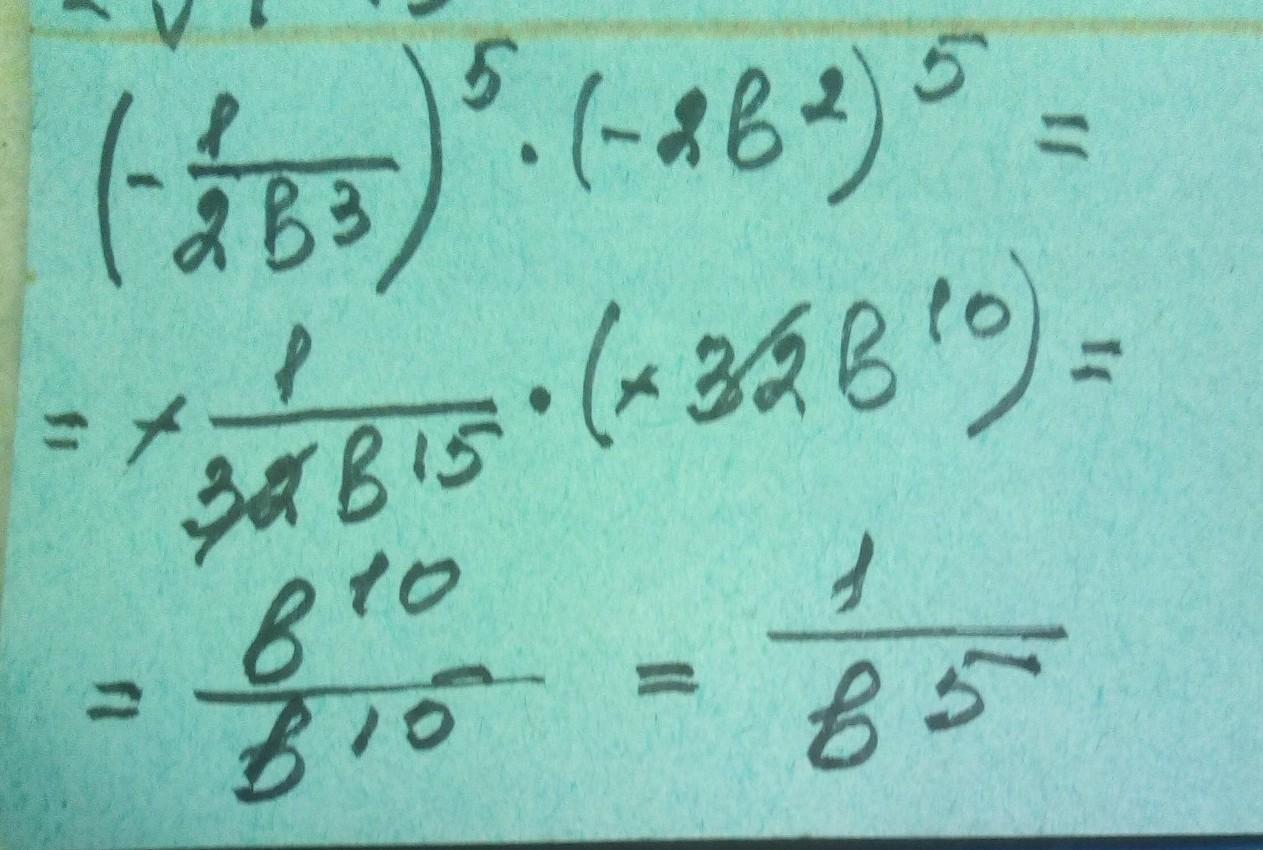 (-1/2b³)⁵ · (-2b²)⁵ =
= + 1/32b¹⁵ · (+ 32b¹⁰) =
= b¹⁰/b¹⁵ = 1/b⁵